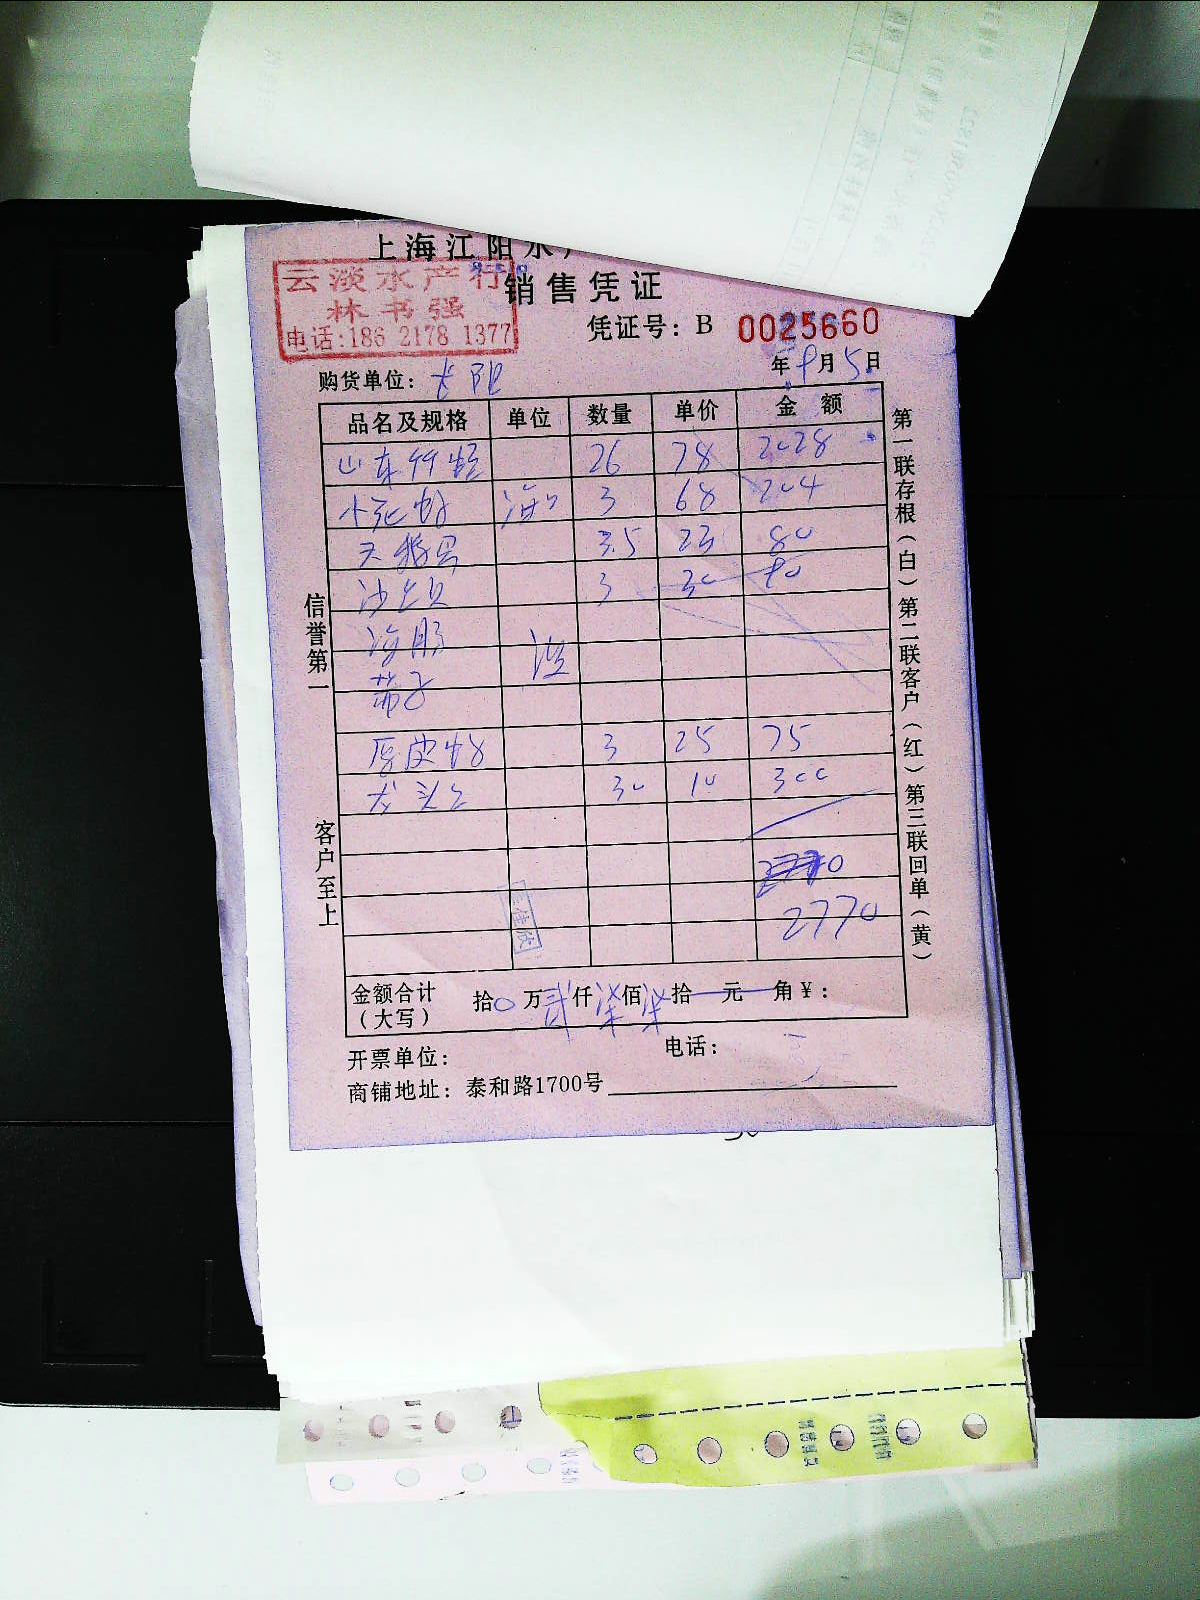 上海江阳水
云淡水产行
林书强
电话:186 2178 1377
销售凭证
凭证号：B 0025660
年 9月5日
购货单位：
品名及规格 单位 数量 单价 金额
山东竹蛏 26 78 2028
3 68 204
天鹅 3.5 23 80
沙 3 30 90
海肠
茄子
厚皮 3 25 75
龙头 30 10 300
2770
金额合计（大写） 拾0万贰仟柒佰柒拾 元 角￥：
开票单位： 电话：
商铺地址：泰和路1700号
信誉第一
客户至上
第一联存根（白）第二联客户（红）第三联回单（黄）